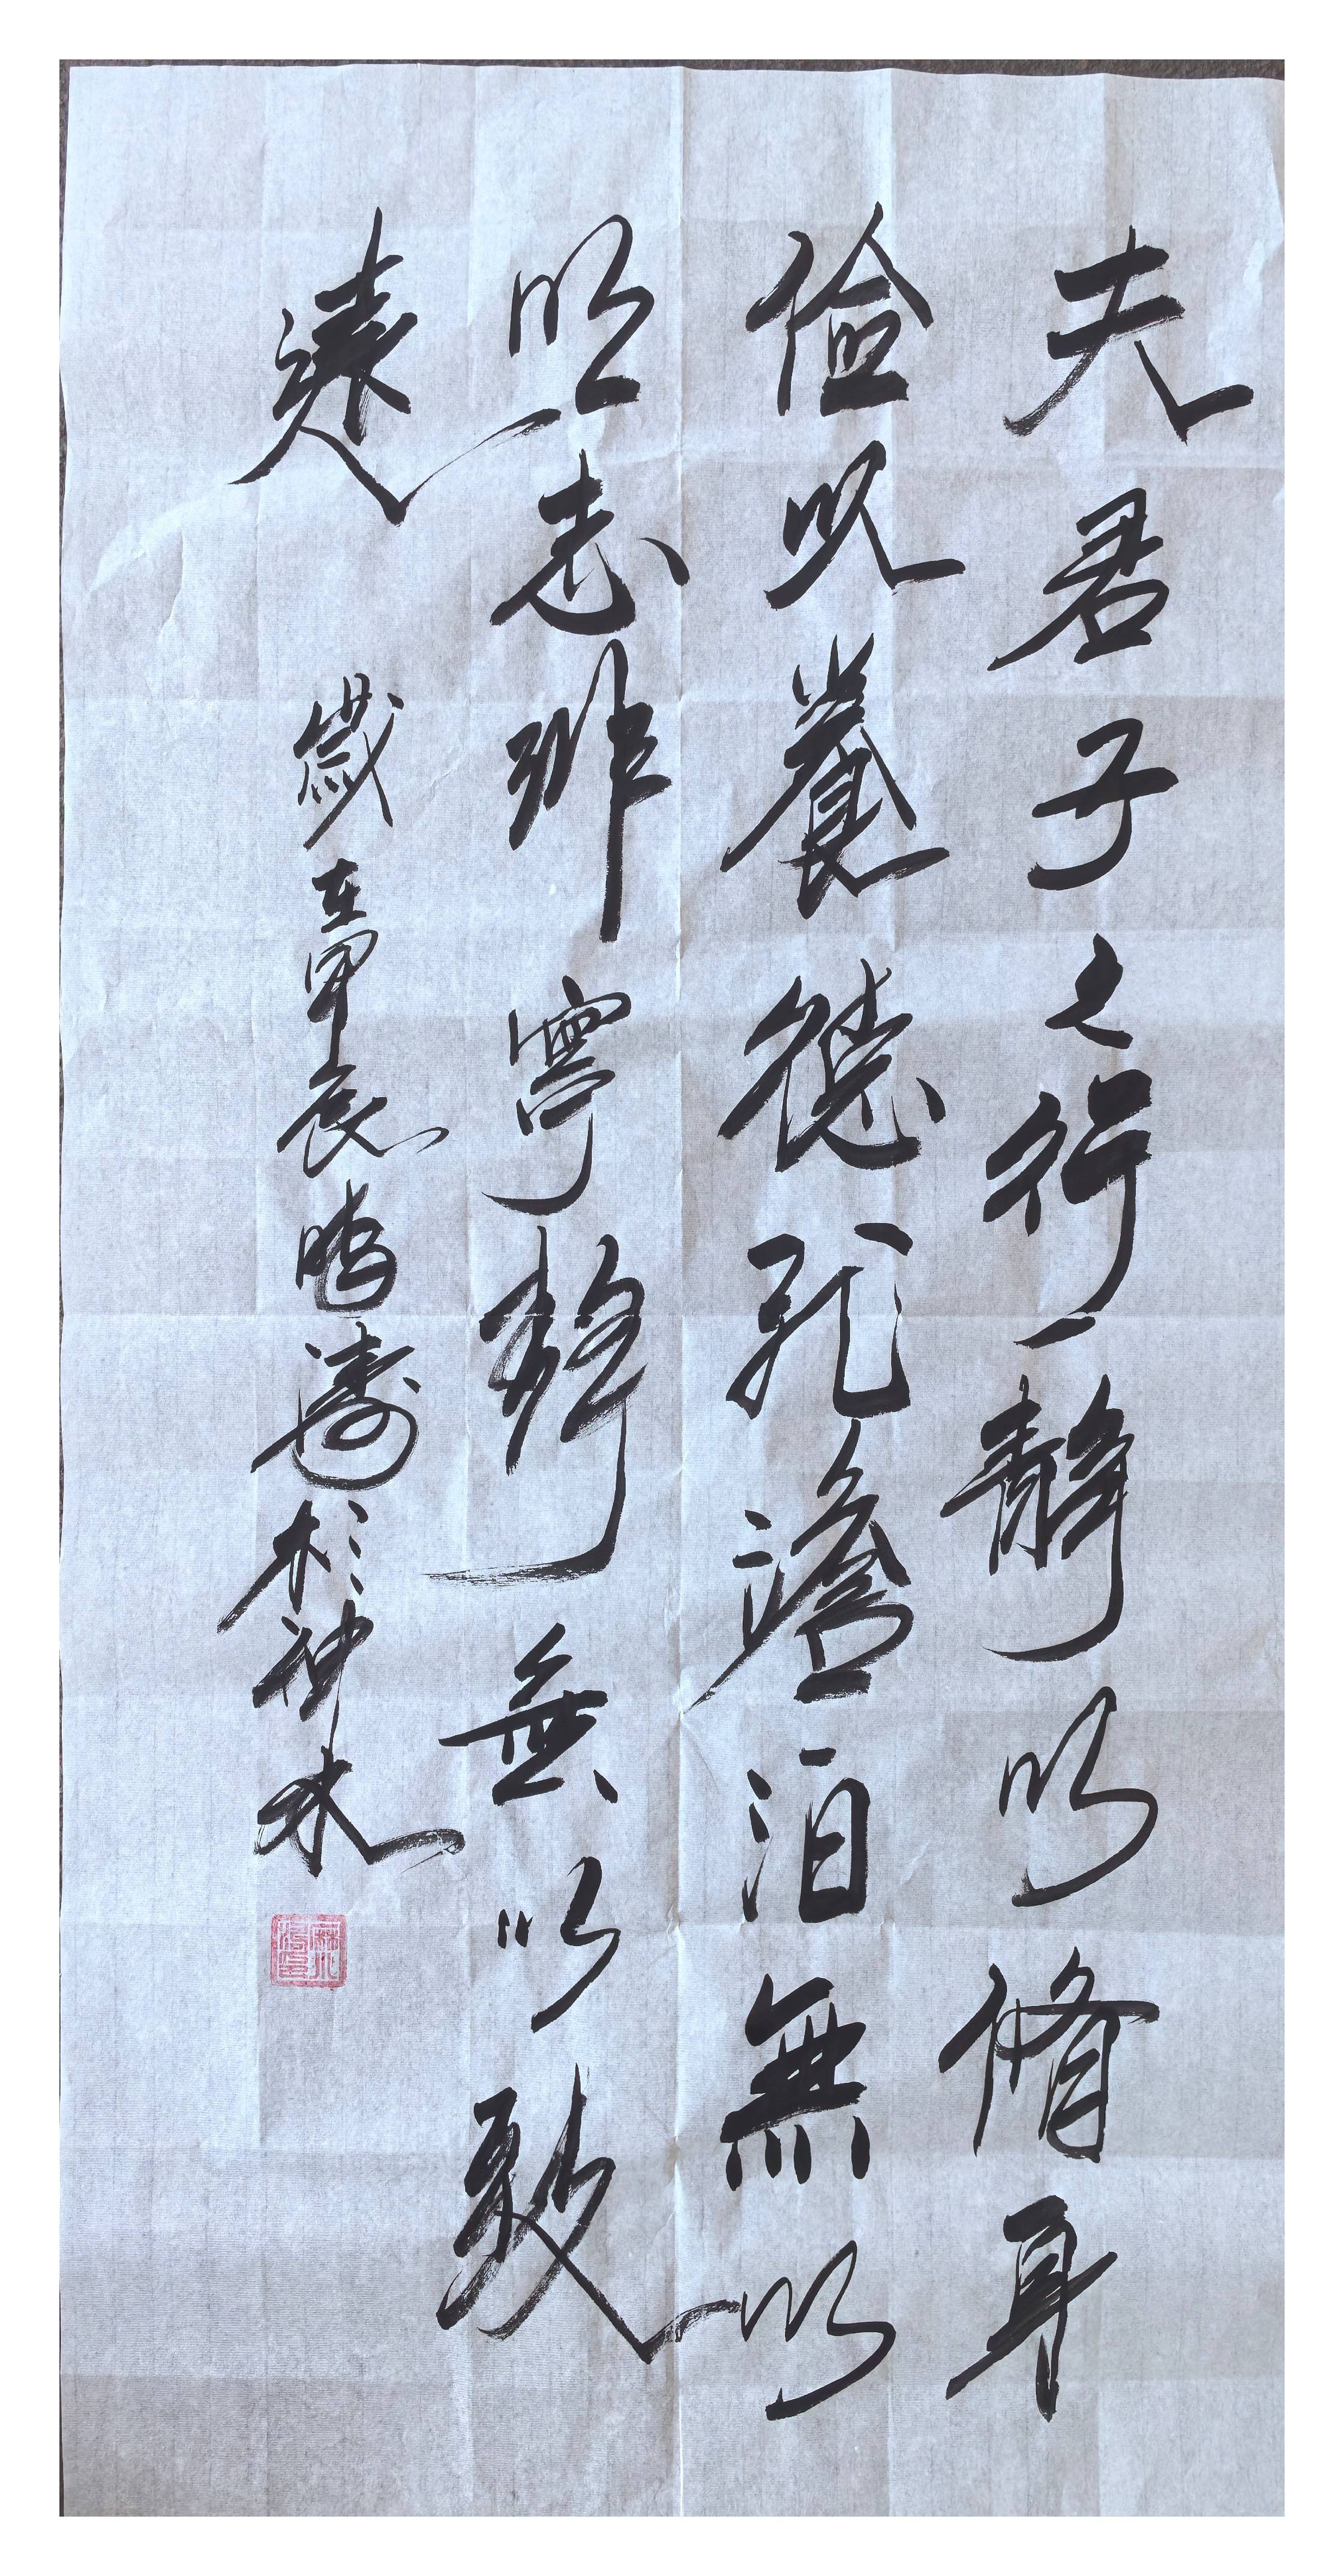 夫君子之行靜以脩身
儉以養德非澹泊無以
明志非寧靜無以致
遠
歲在甲辰濤於神木